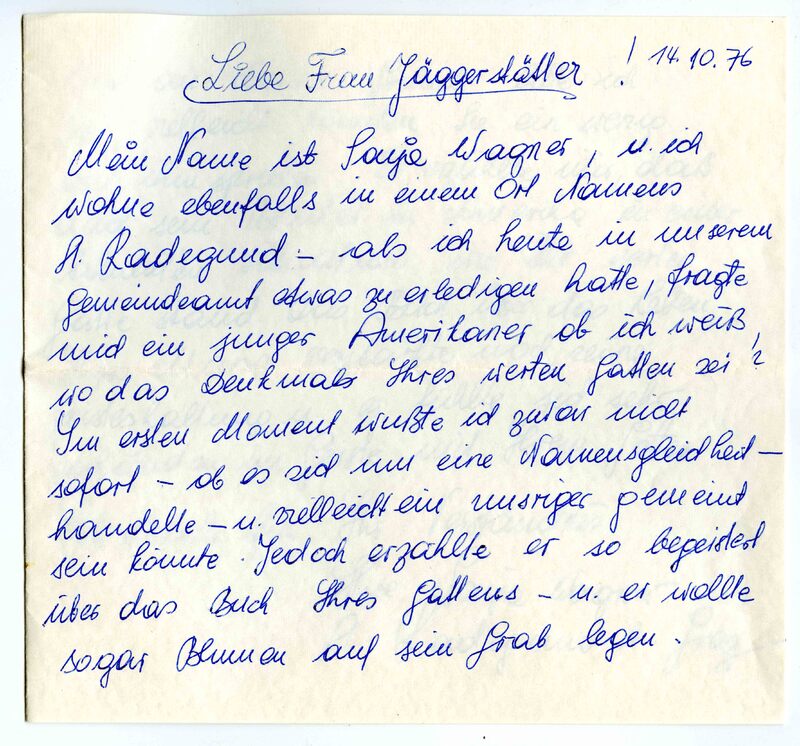 Liebe Frau Jäggerstätter! 14.10.76
Mein Name ist Sonja Wagner, u. ich
wohne ebenfalls in einem Ort Namens
St. Radegund – als ich heute in unserem
Gemeindeamt etwas zu erledigen hatte, fragte
mich ein junger Amerikaner ob ich weiß,
wo das Denkmals Ihres werten Gatten sei?
Im ersten Moment wußte ich zwar nicht
sofort – ob es sich um eine Namensgleichheit –
handelte – u. vielleicht ein unsriger gemeint
sein könnte. Jedoch erzählte er so begeistert
über das Buch Ihres Gattens – u. er wollte
sogar Blumen auf sein Grab legen.